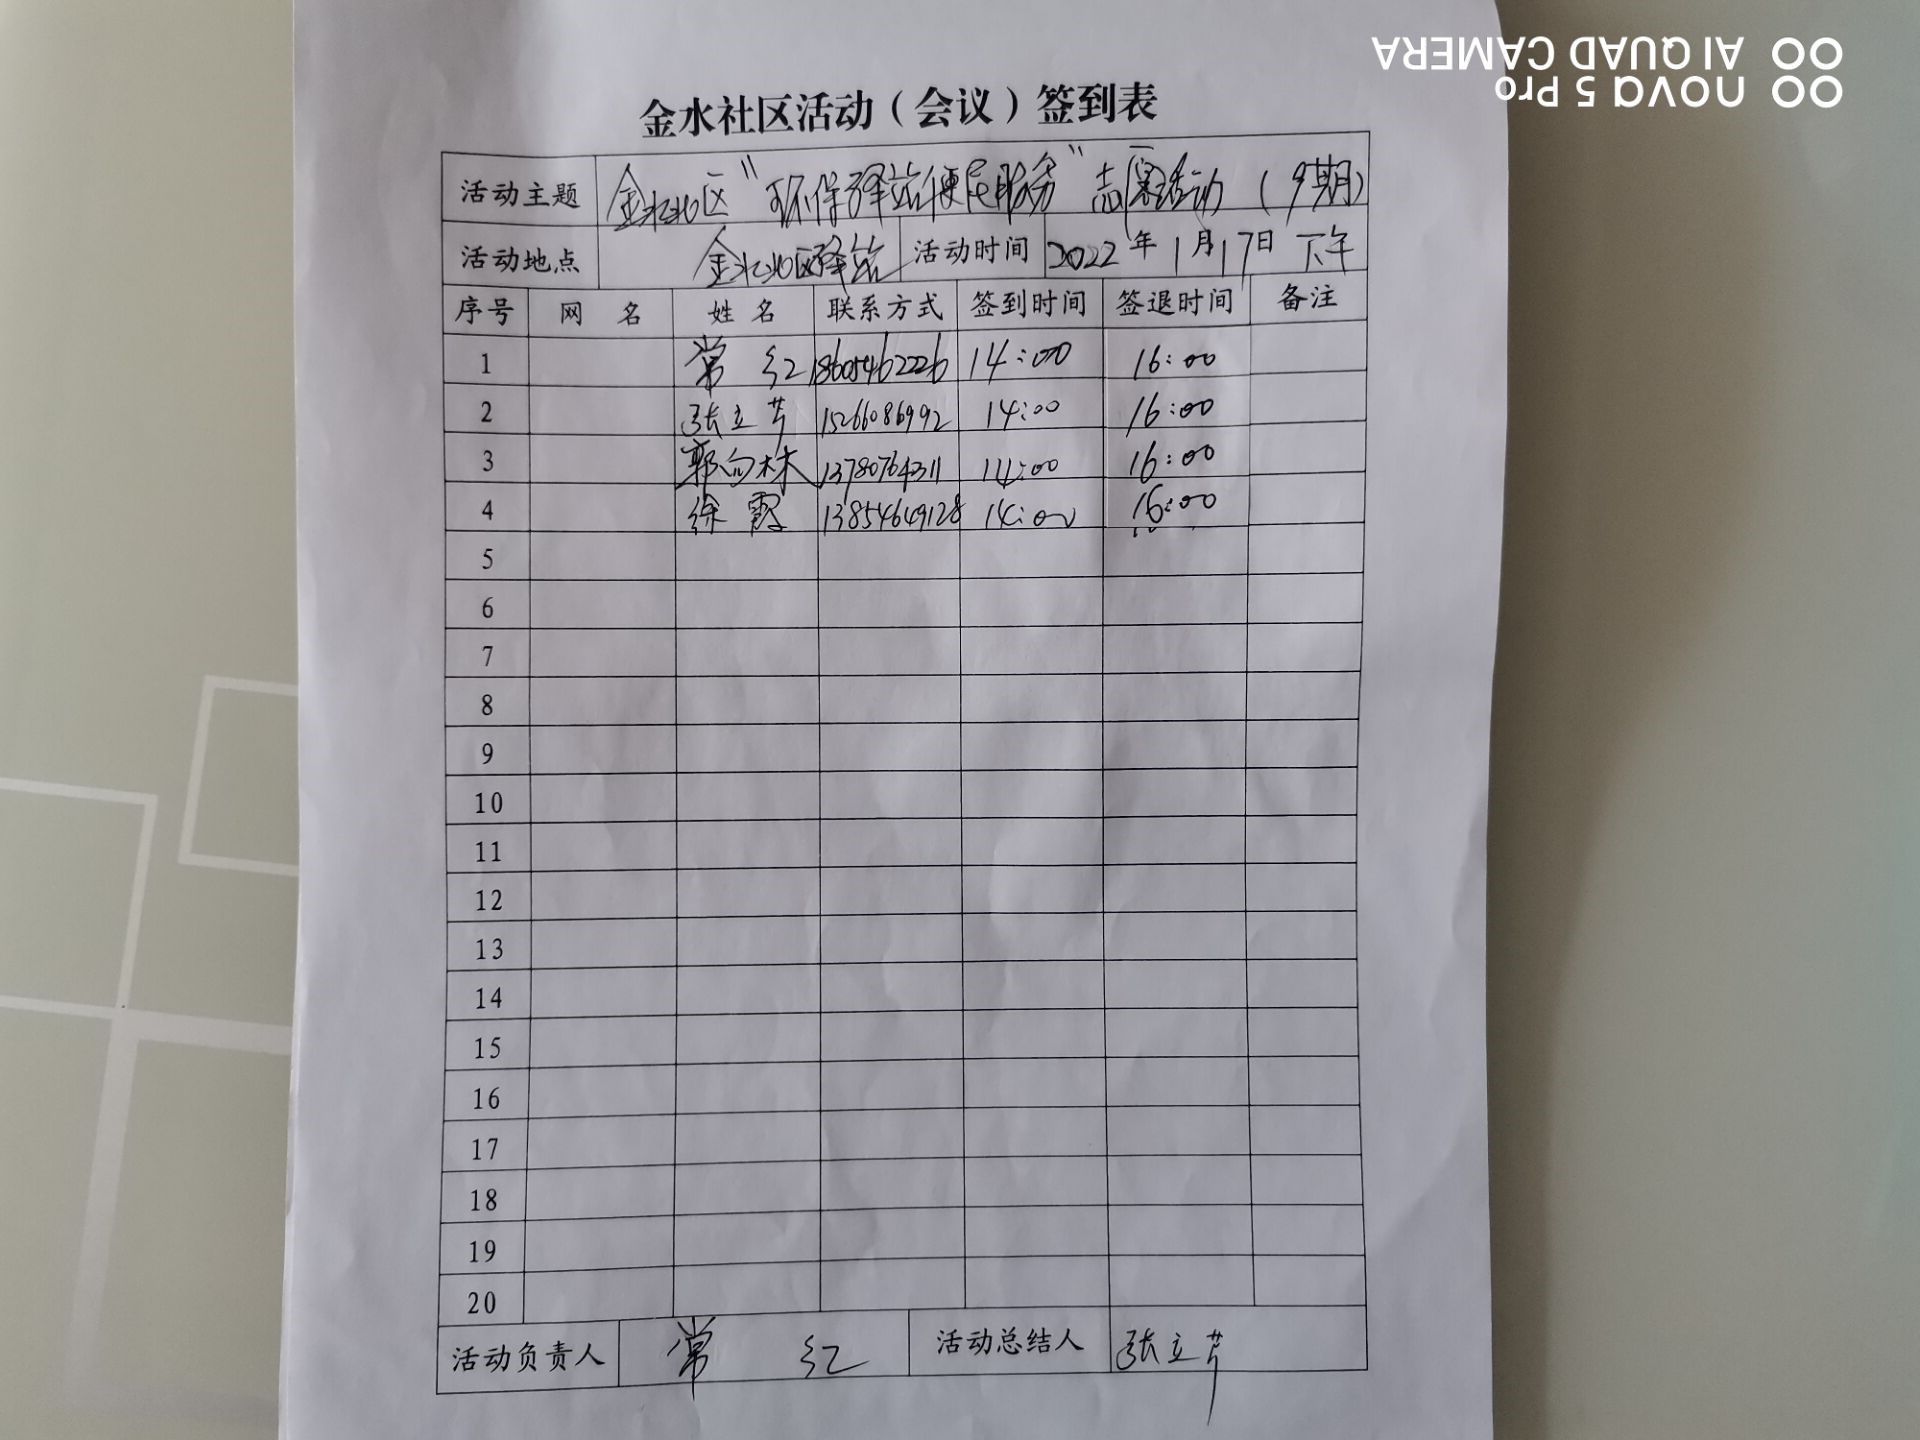 AI QUAD CAMERA
nova 5 Pro
金水社区活动（会议）签到表
活动主题 金水社区"环保驿站便民服务"志愿活动（9期）
活动地点 金水社区驿站 活动时间 2022年1月17日 下午
序号 网 名 姓 名 联系方式 签到时间 签退时间 备注
1 常 红 18605462226 14:00 16:00
2 张立芹 15266086992 14:00 16:00
3 郭向林 13780764311 14:00 16:00
4 徐 霞 13854649128 14:00 16:00
5
6
7
8
9
10
11
12
13
14
15
16
17
18
19
20
活动负责人 常 红 活动总结人 张立芹